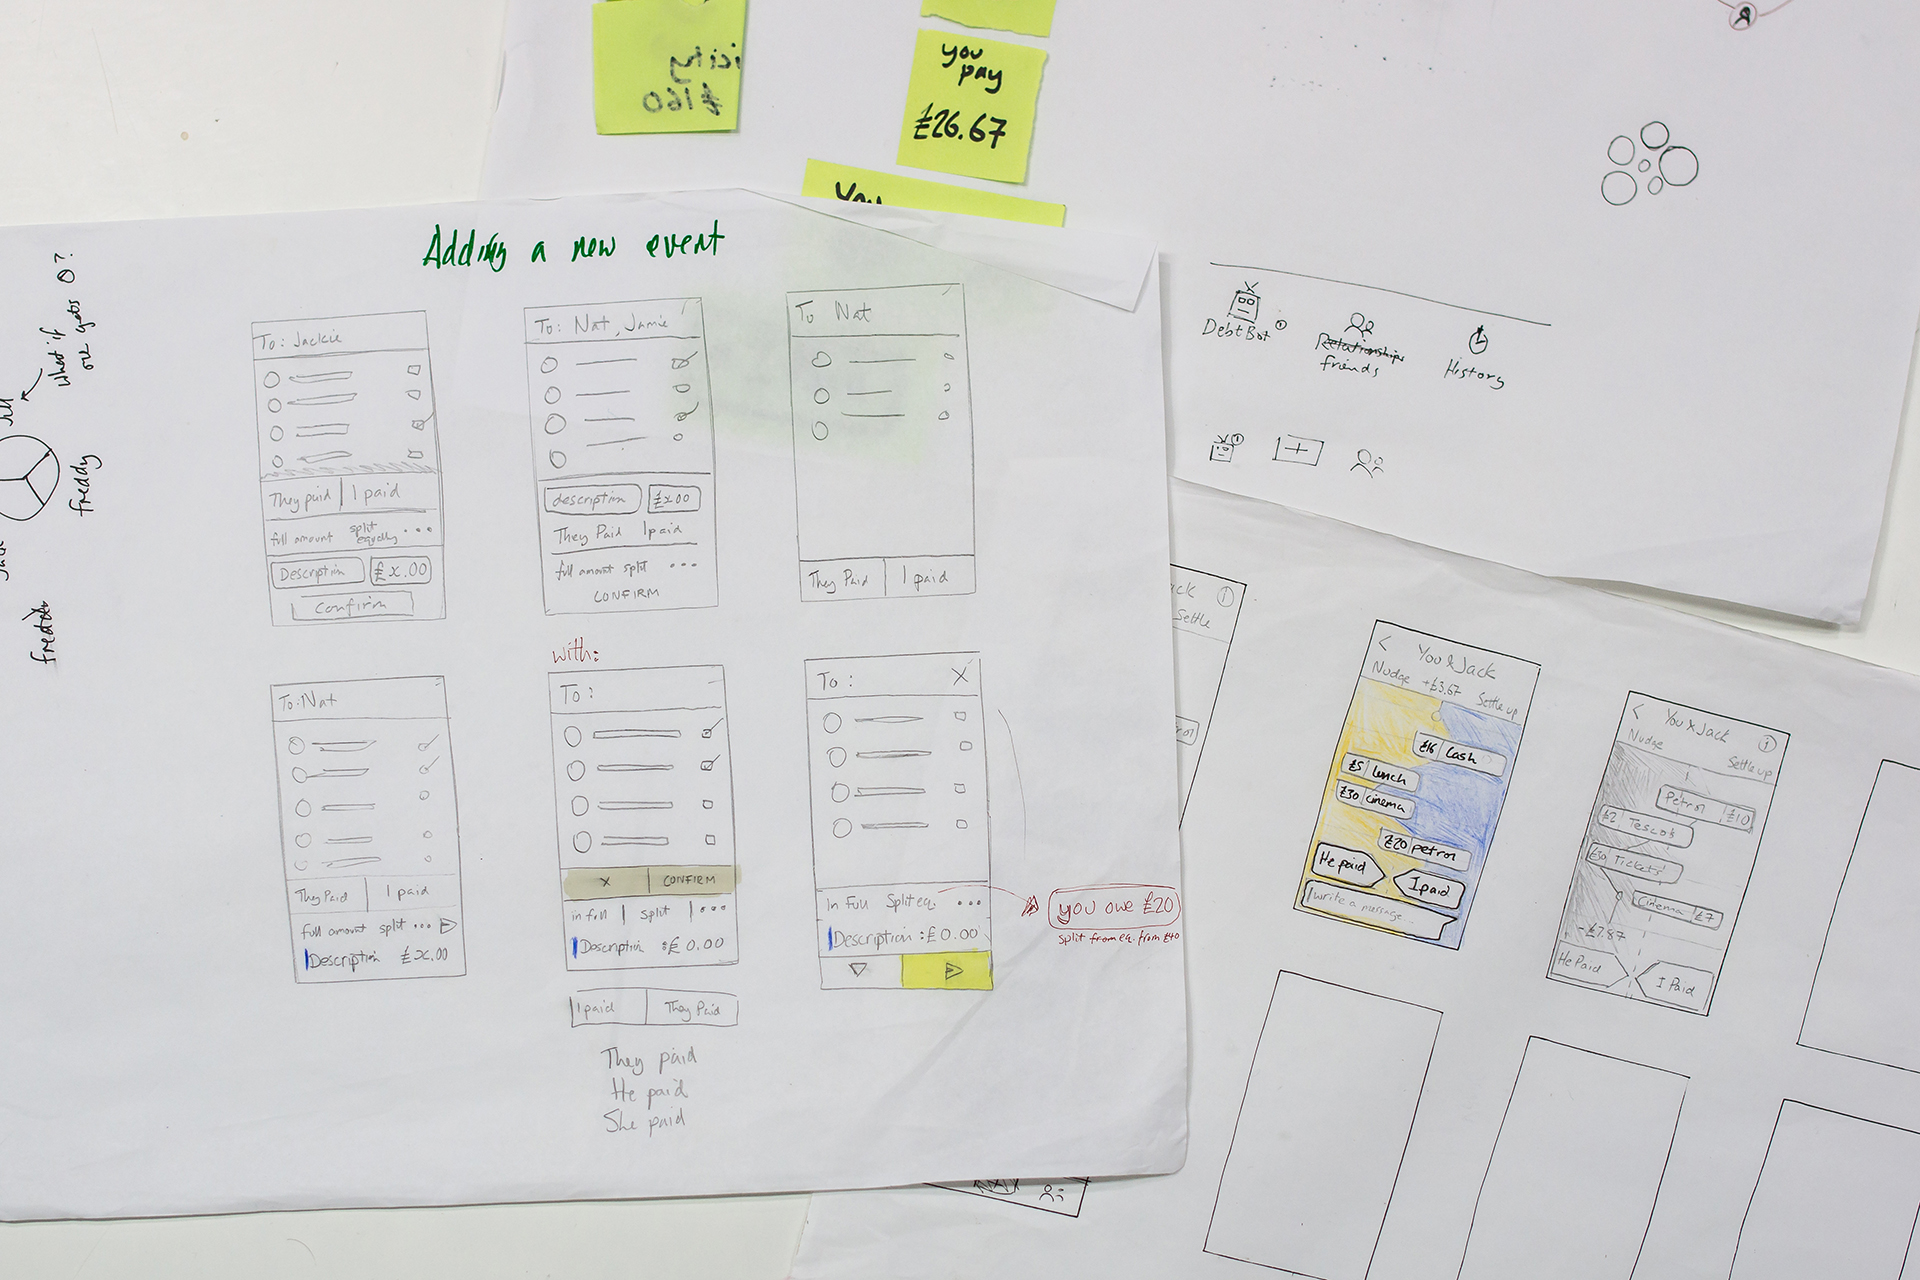 £160
you
pay
£26.67
You
Adding a new event
What if
one gets 0?
Jill
Freddy
freddie
To: Jackie
They paid | I paid
full amount split equally ...
Description £x.00
Confirm
To: Nat, Jamie
description £x.00
They Paid I paid
full amount split ...
CONFIRM
To Nat
They Paid | I paid
To: Nat
They Paid | I paid
full amount split ...
Description £x.00
with:
To:
X | CONFIRM
in full | split | ...
Description : £0.00
I paid | They Paid
They paid
He paid
She paid
To: X
In Full Split eq. ...
Description : £0.00
you owe £20
split from eq. from £40
DebtBot
Relationships
friends
History
Settle
< You & Jack
Nudge +£3.67 Settle up
£16 Cash
£5 lunch
£30 cinema
£20 petrol
He paid I paid
write a message...
< You & Jack i
Nudge Settle up
Petrol £10
£2 Tesco's
£30 Tickets
Cinema £7
-£7.87
He Paid I Paid